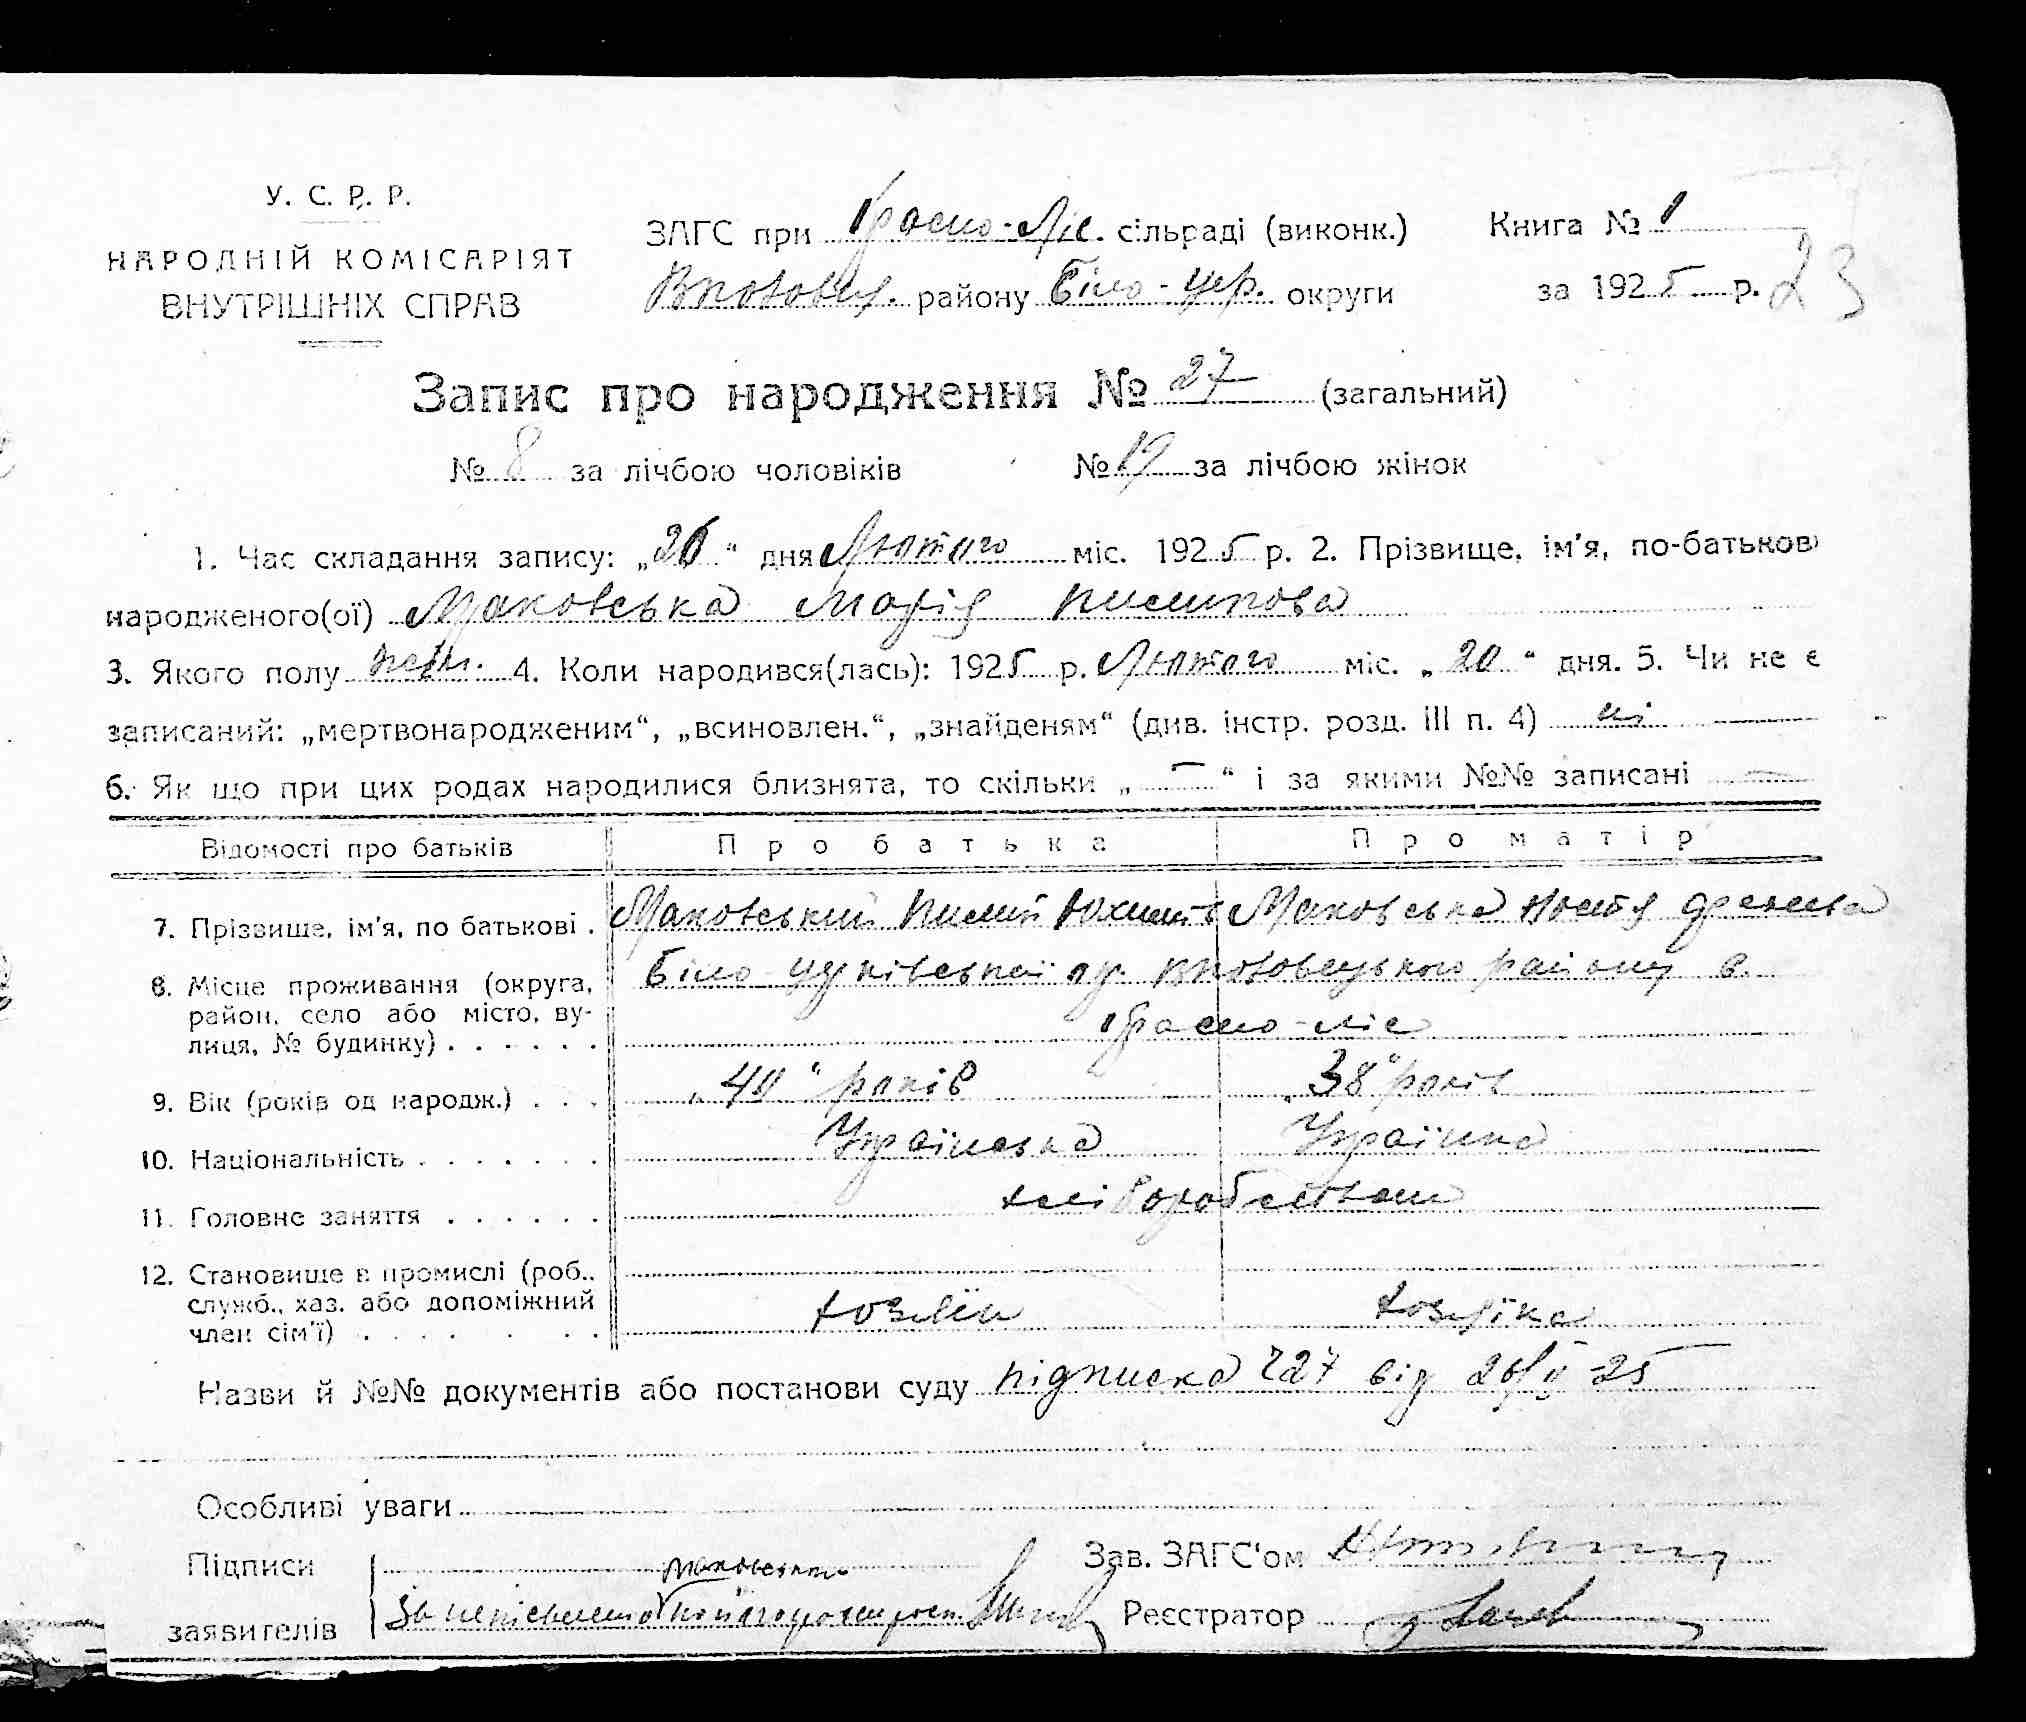 У. С. Р. Р.
НАРОДНІЙ КОМІСАРІЯТ
ВНУТРІШНІХ СПРАВ
ЗАГС при Красно-Ліс. сільраді (виконк.)
району Біло-Цер. округи
Книга № 1
за 1925 р.
23
Запис про народження № 27 (загальний)
№ 8 за лічбою чоловіків № 19 за лічбою жінок
1. Час складання запису: „26“ дня Лютого міс. 1925 р. 2. Прізвище, ім'я, по-батькові
народженого(ої) Маковська Марія
3. Якого полу жін. 4. Коли народився(лась): 1925 р. Лютого міс. „20“ дня. 5. Чи не є
записаний: „мертвонародженим“, „всиновлен.“, „знайденям“ (див. інстр. розд. III п. 4) ні
6. Як що при цих родах народилися близнята, то скільки „ — “ і за якими №№ записані —
Відомості про батьків Про батька Про матір
7. Прізвище, ім'я, по батькові . Маковський Маковська Настя
8. Місце проживання (округа, Біло району с.
район, село або місто, ву-
лиця, № будинку) . . . . . . Красно-ліс
9. Вік (років од народж.) . . . „40“ років „38“ років
10. Національність . . . . . . . Українська Українка
11. Головне заняття . . . . . . хліборобством
12. Становище в промислі (роб.,
служб., хаз. або допоміжний хозяїн хозяїка
член сім'ї) . . . . . . .
Назви й №№ документів або постанови суду підписка 27 від 26/II-25
Особливі уваги
Підписи Маковський
заявителів За
Зав. ЗАГС'ом
Реєстратор